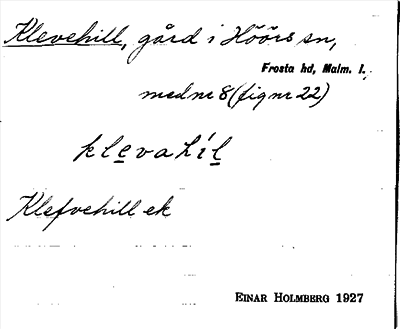 Klevehill, gård i Höörs sn,
Frosta hd, Malm. l.
med nr 8 (fig nr 22)
klevahíl
Klefvehill ek
EINAR HOLMBERG 1927